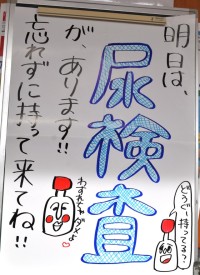 明日は、
尿検査
が、あります!!
忘れずに持って来てね!!
わすれちゃダメよ
どうぐ、持ってる?